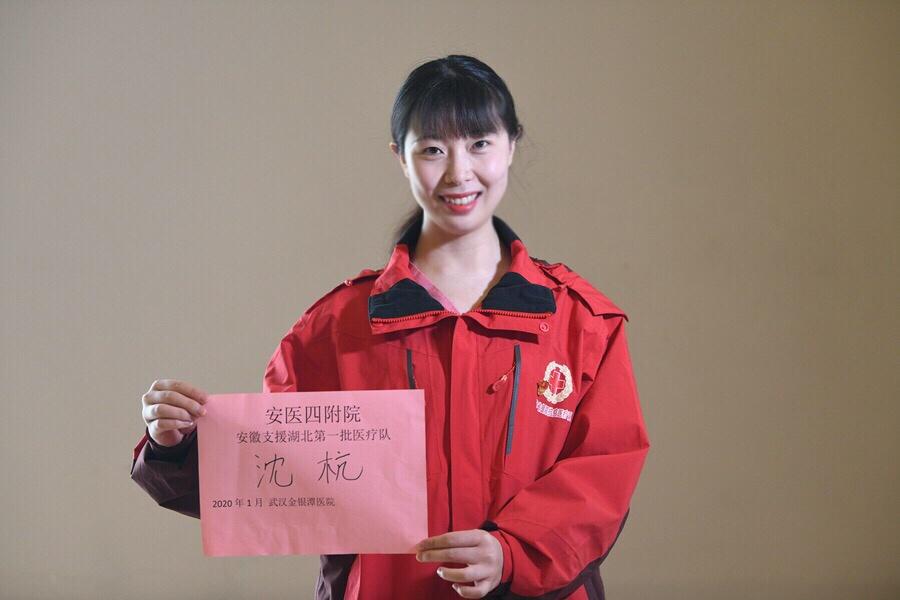 安医四附院
安徽支援湖北第一批医疗队
沈 杭
2020 年 1 月 武汉金银潭医院